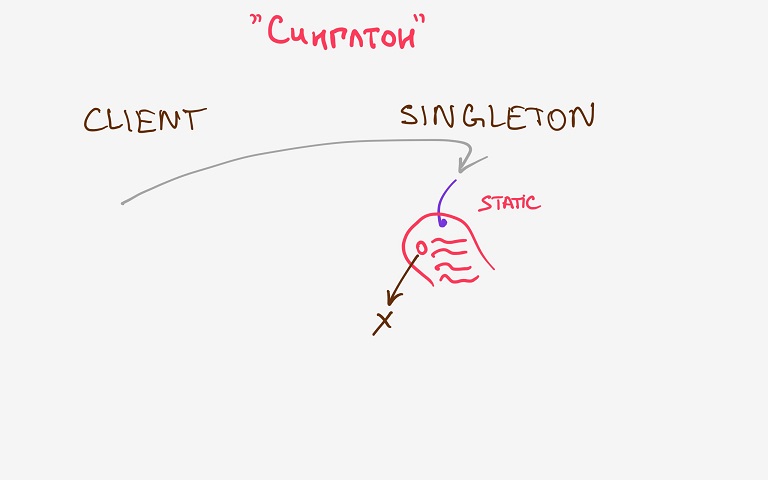 "Синглтон"
CLIENT SINGLETON
STATIC
X